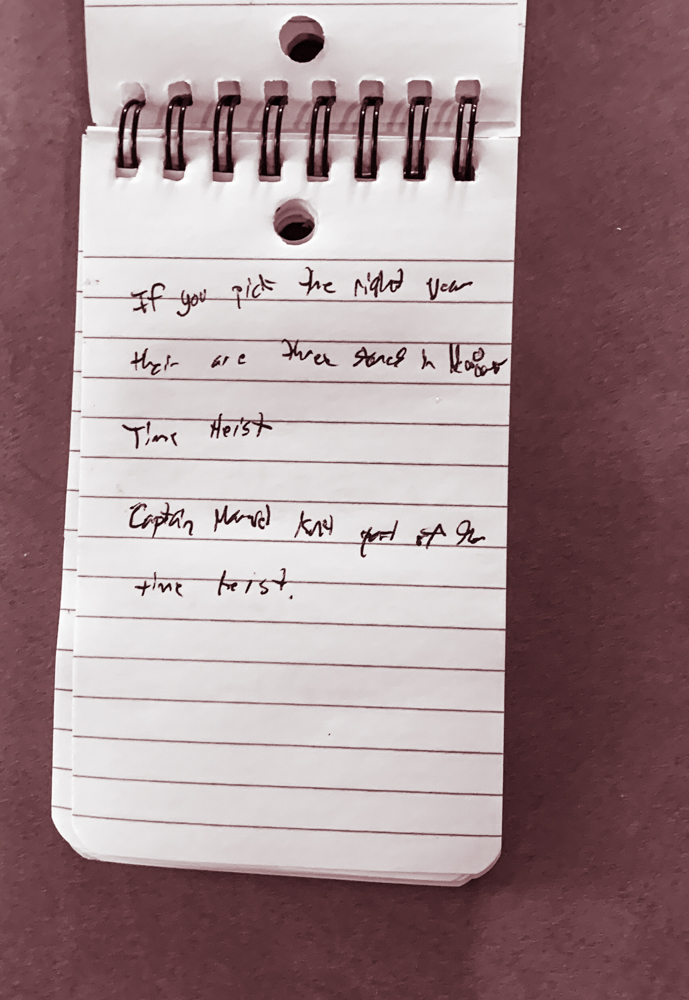 If you pick the right year
their are three stones in
Time Heist
Captain Marvel isn't part of the
time heist.